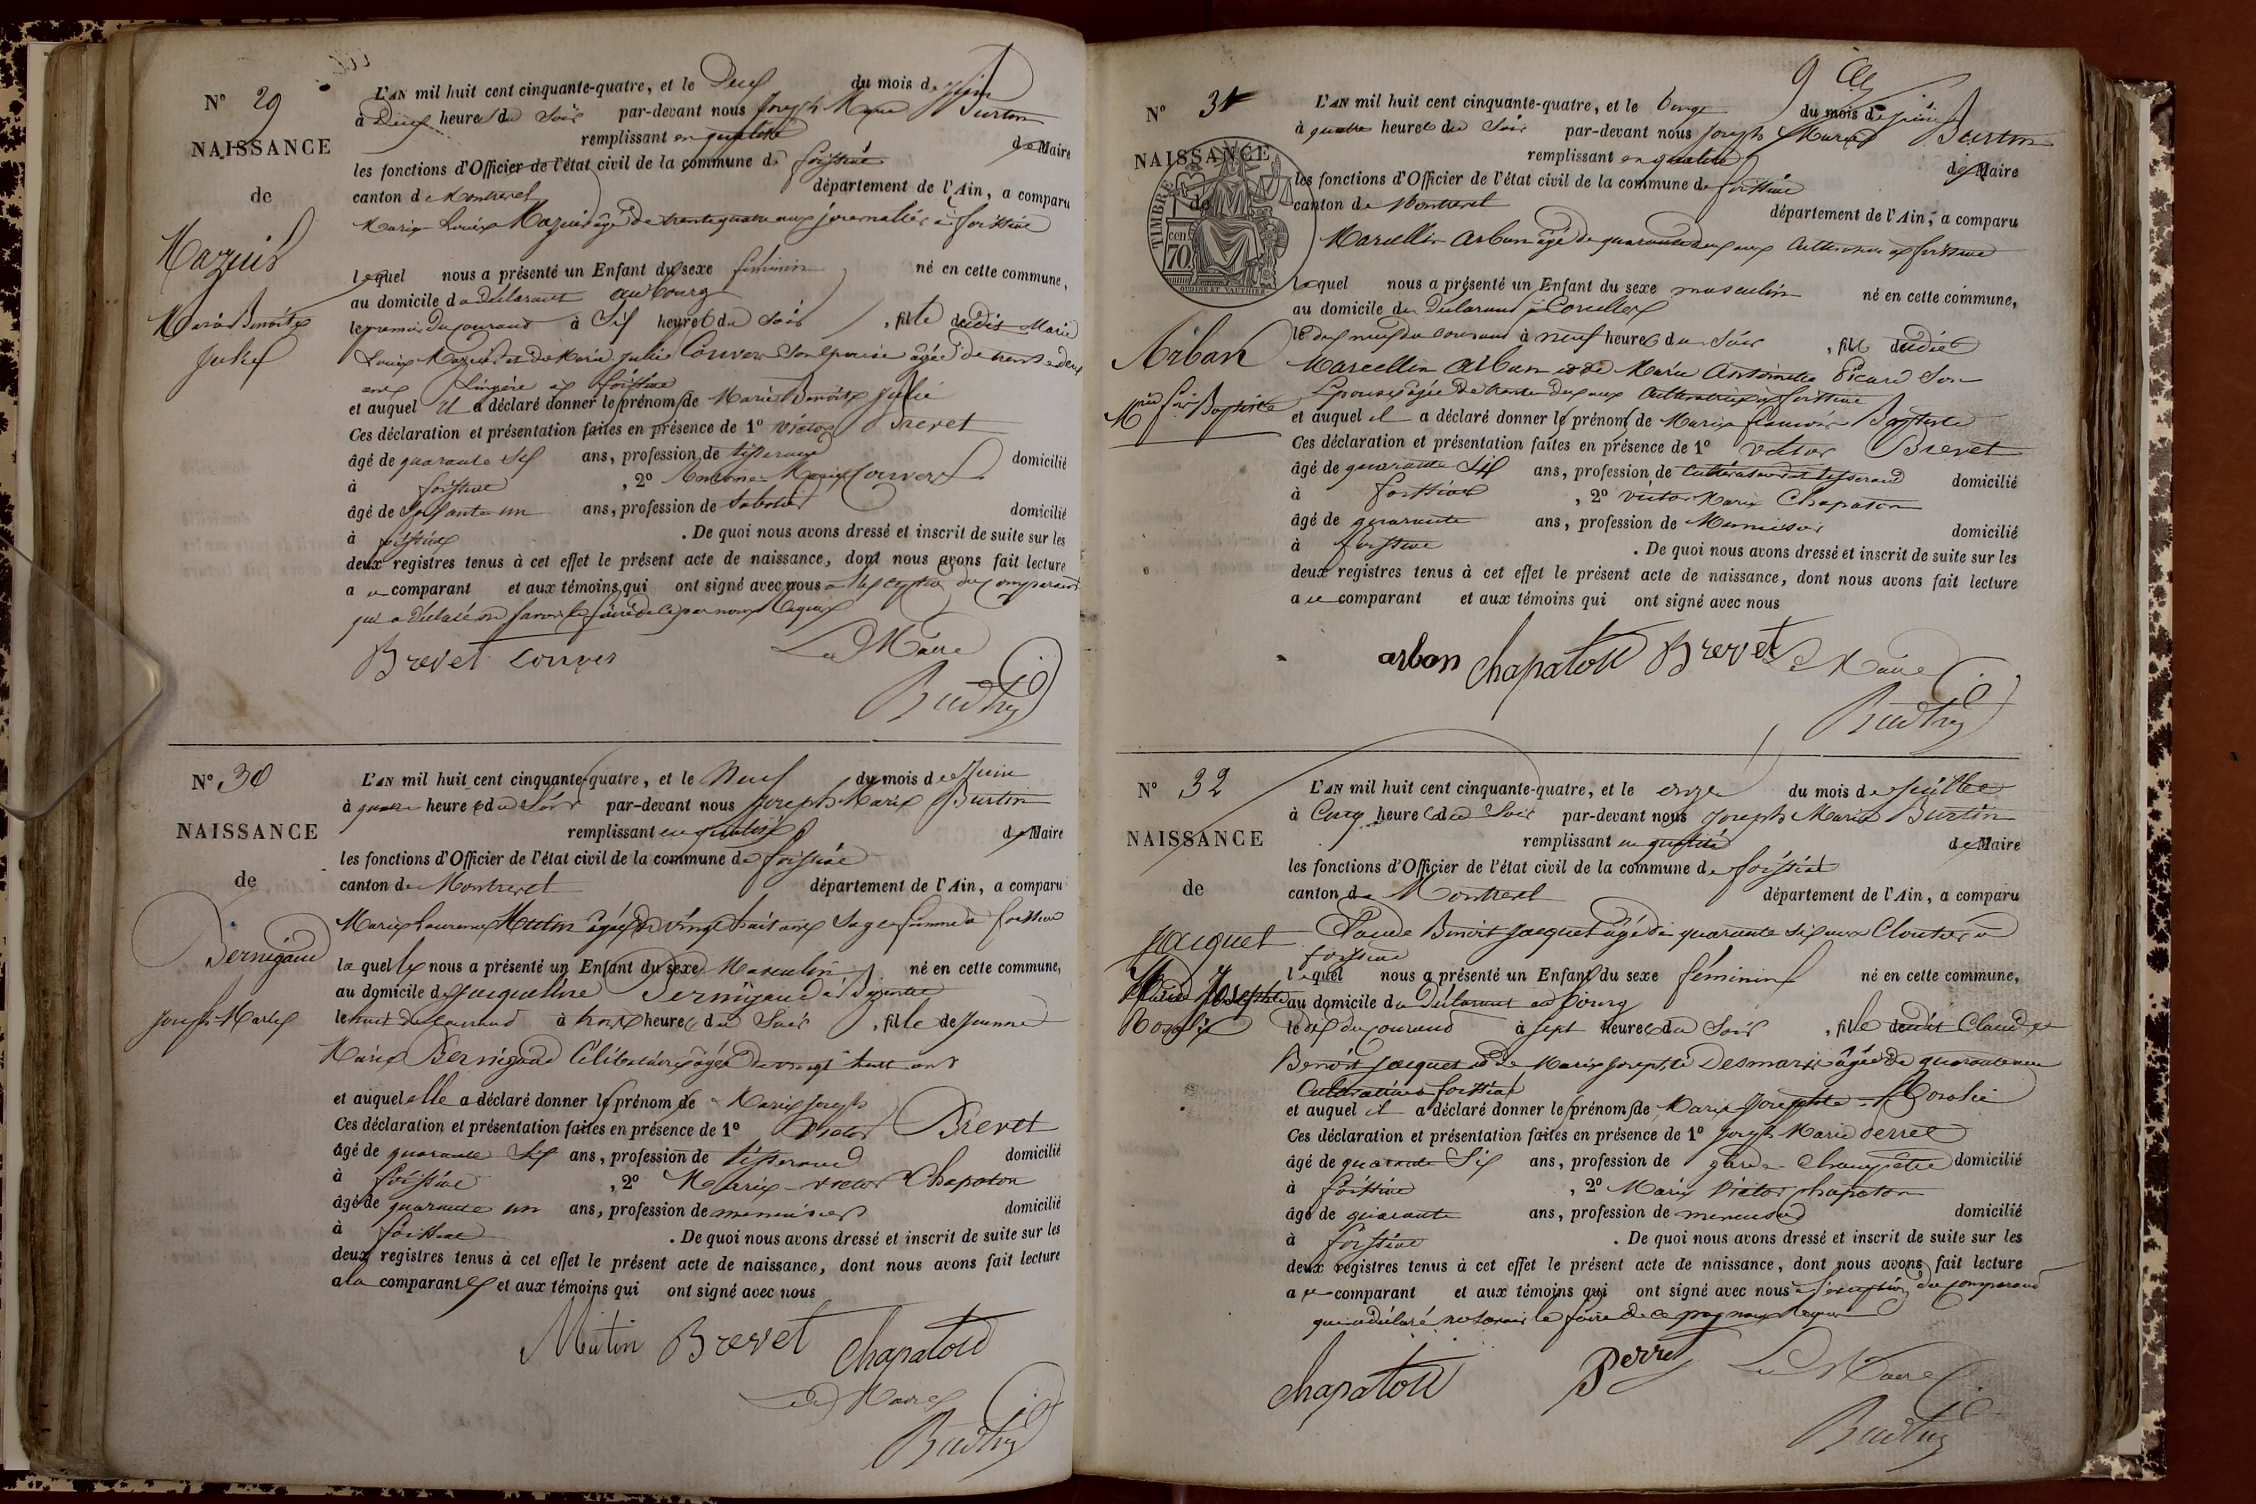 N° 29
NAISSANCE
de
Mazuis
Marie Benoite
Julie
L'AN mil huit cent cinquante-quatre, et le Deux du mois de Juin
à Deux heures du Soir par-devant nous Joseph Marie Burtin
remplissant en qualité de Maire
les fonctions d'Officier de l'état civil de la commune de foissiat
canton de Montrevel département de l'Ain, a comparu
Marie Louis Mazuis âgé de trente quatre ans journalier à foissiat
lequel nous a présenté un Enfant du sexe féminin né en cette commune,
au domicile du déclarant au bourg
le premier du courant à Six heures du Soir, fille dudit Marie
Louis Mazuis et de Marie Julie Couver son épouse âgée de trente deux
ans lingère à foissiat
et auquel il a déclaré donner les prénoms de Marie Benoite Julie
Ces déclaration et présentation faites en présence de 1° Victor Brevet
âgé de quarante Six ans, profession de tisserand domicilié
à foissiat, 2° Marie Couver
âgé de soixante un ans, profession de Sabotier domicilié
à foissiat. De quoi nous avons dressé et inscrit de suite sur les
deux registres tenus à cet effet le présent acte de naissance, dont nous avons fait lecture
au comparant et aux témoins qui ont signé avec nous à l'exception du comparant
qui a déclaré ne savoir le faire de ce par nous requis
Brevet Couver Le Maire
Burtin
N° 30
NAISSANCE
de
Bernigaud
Joseph Marie
L'AN mil huit cent cinquante-quatre, et le Neuf du mois de Juin
à quatre heures du Soir par-devant nous Joseph Marie Burtin
remplissant en qualité de Maire
les fonctions d'Officier de l'état civil de la commune de foissiat
canton de Montrevel département de l'Ain, a comparu
Marie Laurence Mutin âgée de vingt huit ans Sage femme à foissiat
laquelle nous a présenté un Enfant du sexe Masculin né en cette commune,
au domicile de Jacqueline Bernigaud à
le huit du courant à trois heures du Soir, fils de Jeanne
Marie Bernigaud Célibataire âgée de vingt huit ans
et auquel elle a déclaré donner les prénoms de Marie Joseph
Ces déclaration et présentation faites en présence de 1° Victor Brevet
âgé de quarante Six ans, profession de tisserand domicilié
à foissiat, 2° Marie Victor Chapaton
âgé de quarante un ans, profession de menuisier domicilié
à foissiat. De quoi nous avons dressé et inscrit de suite sur les
deux registres tenus à cet effet le présent acte de naissance, dont nous avons fait lecture
a la comparante et aux témoins qui ont signé avec nous
Mutin Brevet Chapaton
Le Maire
Burtin
N° 31
NAISSANCE
de
TIMBRE
cen.
70
Arban
Baptiste
L'AN mil huit cent cinquante-quatre, et le onze du mois de juin
à quatre heures du Soir par-devant nous Joseph Marie Burtin
remplissant en qualité de Maire
les fonctions d'Officier de l'état civil de la commune de foissiat
canton de Montrevel département de l'Ain, a comparu
Marcellin Arban âgé de quarante deux ans Cultivateur à foissiat
lequel nous a présenté un Enfant du sexe masculin né en cette commune,
au domicile du Déclarant à
le dix neuf du courant à neuf heures du Soir, fils dudit
Marcellin Arban et de Marie Antoinette Picard Son
Epouse âgée de trente deux ans Cultivatrice à foissiat
et auquel il a déclaré donner les prénoms de Marie françois Baptiste
Ces déclaration et présentation faites en présence de 1° Victor Brevet
âgé de quarante Six ans, profession de Cultivateur et tisserand domicilié
à foissiat, 2° Victor Marie Chapaton
âgé de quarante ans, profession de Menuisier domicilié
à foissiat. De quoi nous avons dressé et inscrit de suite sur les
deux registres tenus à cet effet le présent acte de naissance, dont nous avons fait lecture
au comparant et aux témoins qui ont signé avec nous
arban Chapaton Brevet Le Maire
Burtin
N° 32
NAISSANCE
de
Jacquet
Marie Josephte
Rosalie
L'AN mil huit cent cinquante-quatre, et le onze du mois de Juillet
à Cinq heures du Soir par-devant nous Joseph Marie Burtin
remplissant en qualité de Maire
les fonctions d'Officier de l'état civil de la commune de foissiat
canton de Montrevel département de l'Ain, a comparu
Claude Benoit Jacquet âgé de quarante six ans Cloutier à
foissiat
lequel nous a présenté un Enfant du sexe féminin né en cette commune,
au domicile du déclarant au bourg
le dix du courant à sept heures du Soir, fille dudit Claude
Benoit Jacquet et de Marie Josephte Desmaris âgée de quarante
Cultivatrice à foissiat
et auquel il a déclaré donner les prénoms de Marie Josephte Rosalie
Ces déclaration et présentation faites en présence de 1° Joseph Marie Perret
âgé de quarante Six ans, profession de garde Champêtre domicilié
à foissiat, 2° Marie Victor Chapaton
âgé de quarante ans, profession de menuisier domicilié
à foissiat. De quoi nous avons dressé et inscrit de suite sur les
deux registres tenus à cet effet le présent acte de naissance, dont nous avons fait lecture
au comparant et aux témoins qui ont signé avec nous à l'exception du comparant
qui a déclaré ne savoir le faire de ce par nous requis
Chapaton Perret Le Maire
Burtin